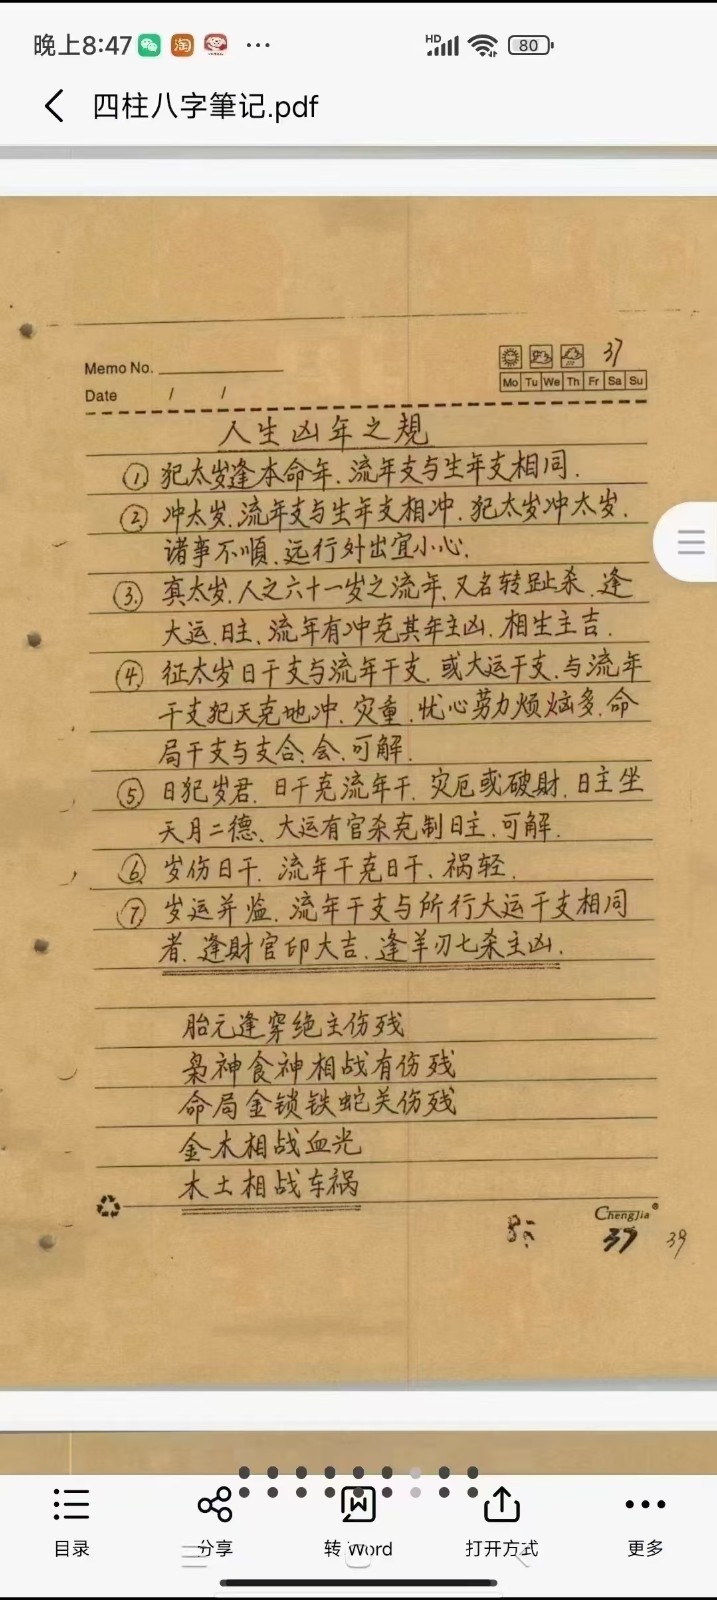 晚上8:47
淘
...
HD
80
四柱八字筆记.pdf
37
Memo No.
Mo Tu We Th Fr Sa Su
Date / /
人生凶年之規
① 犯太岁逢本命年、流年支与生年支相同.
② 冲太岁.流年支与生年支相冲.犯太岁冲太岁.
诸事不順.远行外出宜小心.
③ 真太岁.人之六十一岁之流年.又名转趾杀.逢
大运.日主.流年有冲克其年主凶.相生主吉.
④ 征太岁日干支与流年干支.或大运干支.与流年
干支犯天克地冲.灾重.忧心劳力烦恼多.命
局干支与支合.会.可解.
⑤ 日犯岁君.日干克流年干.灾厄或破財.日主坐
天月二德、大运有官杀克制日主.可解.
⑥ 岁伤日干.流年干克日干、祸轻.
⑦ 岁运并临.流年干支与所行大运干支相同
者.逢財官印大吉.逢羊刃七杀主凶.
胎元逢穿绝主伤残
枭神食神相战有伤残
命局金锁铁蛇关伤残
金木相战血光
木土相战车祸
ChengJia
37 39
目录
分享
转 Word
打开方式
更多